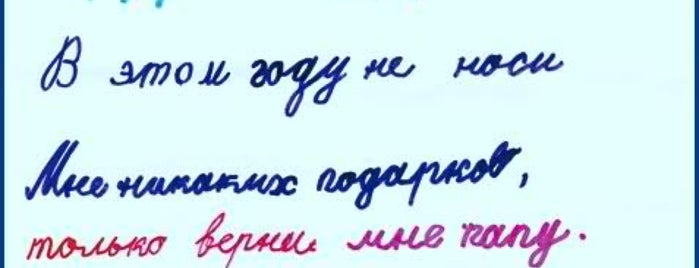 В этом году не носи
Мне никаких подарков,
только верни мне папу.